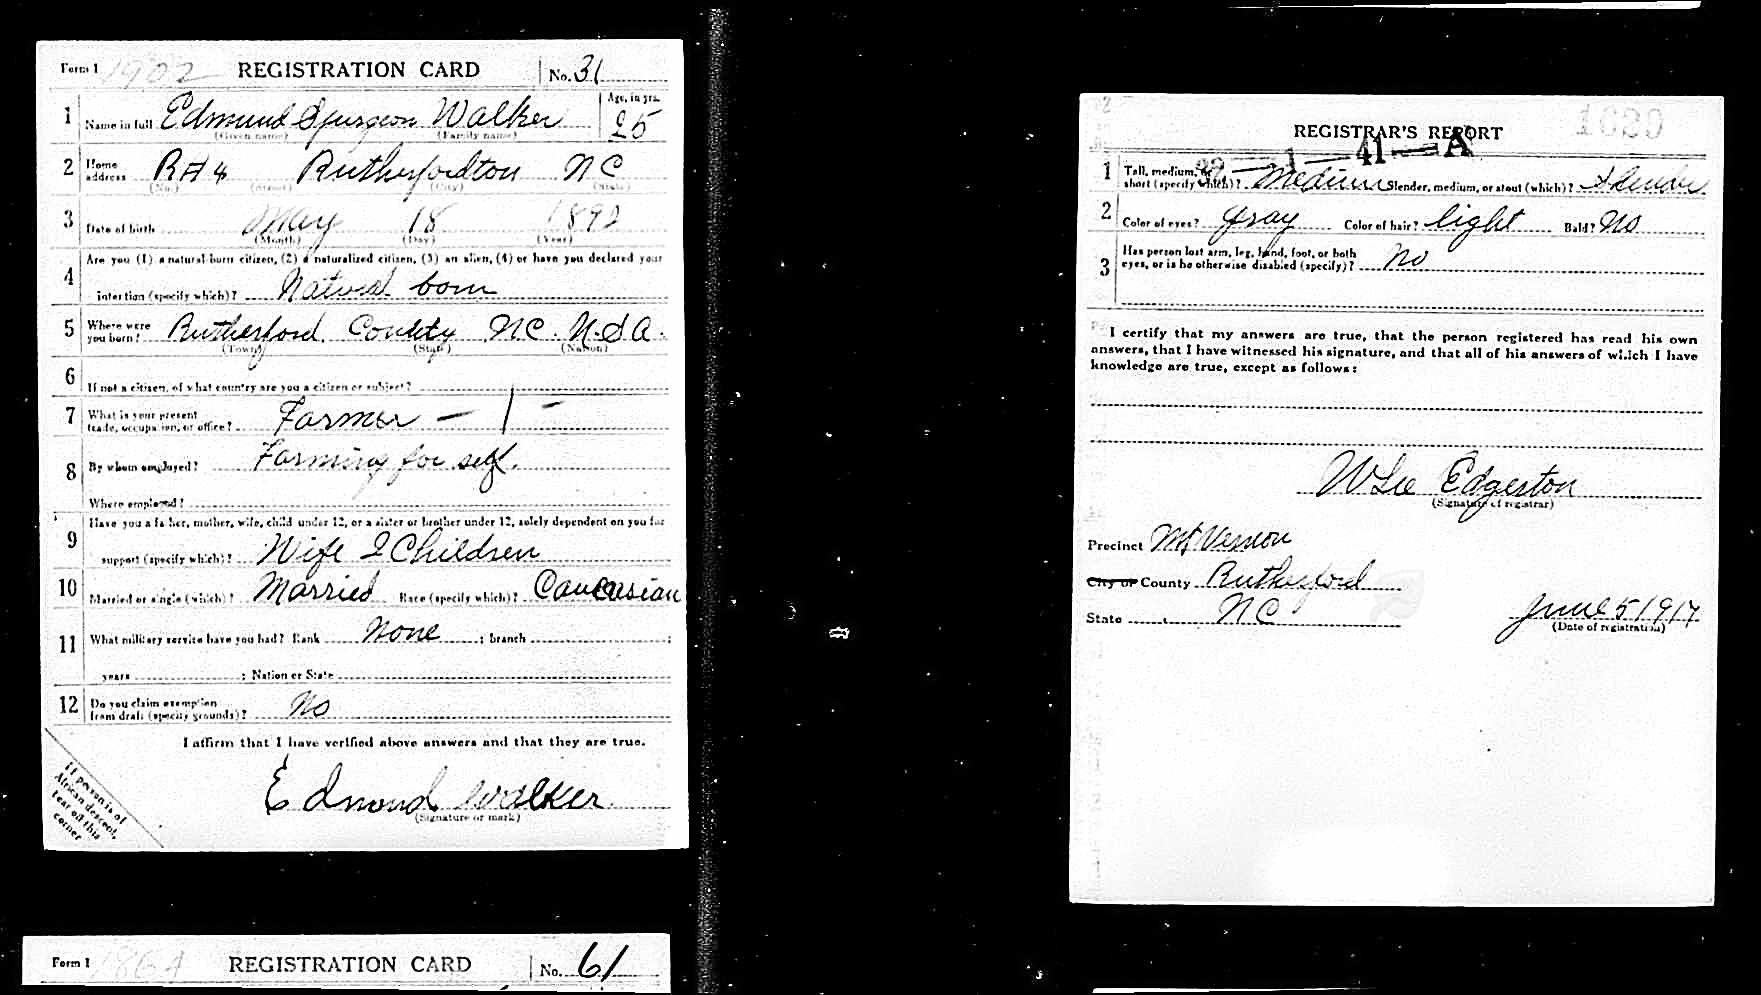 Form 1 1902 REGISTRATION CARD No. 31
1 Name in full Edmund Spurgeon Walker Age, in yrs. 25
(Given name) (Family name)
2 Home address R # 4 Rutherfordton NC
(No.) (Street) (City) (State)
3 Date of birth May 18 1892
(Month) (Day) (Year)
4 Are you (1) a natural-born citizen, (2) a naturalized citizen, (3) an alien, (4) or have you declared your
intention (specify which)? Natural born
5 Where were you born? Rutherford County NC. U.S.A.
(Town) (State) (Nation)
6 If not a citizen, of what country are you a citizen or subject?
7 What is your present trade, occupation, or office? Farmer — 1 —
8 By whom employed? Farming for self.
Where employed?
9 Have you a father, mother, wife, child under 12, or a sister or brother under 12, solely dependent on you for
support (specify which)? Wife 2 Children
10 Married or single (which)? Married Race (specify which)? Caucasian
11 What military service have you had? Rank None ; branch ;
years ; Nation or State
12 Do you claim exemption from draft (specify grounds)? No
I affirm that I have verified above answers and that they are true.
Edmond Walker
(Signature or mark)
If person is of
African descent,
tear off this
corner
Form 1 1864 REGISTRATION CARD No. 61
REGISTRAR'S REPORT
1 Tall, medium, or short (specify which)? Medium Slender, medium, or stout (which)? Slender
2 Color of eyes? Gray Color of hair? light Bald? No
3 Has person lost arm, leg, hand, foot, or both eyes, or is he otherwise disabled (specify)? No
I certify that my answers are true, that the person registered has read his own
answers, that I have witnessed his signature, and that all of his answers of which I have
knowledge are true, except as follows:
W Lee Edgerton
(Signature of registrar)
Precinct Mt Vernon
City or County Rutherford
State NC June 5 1917
(Date of registration)